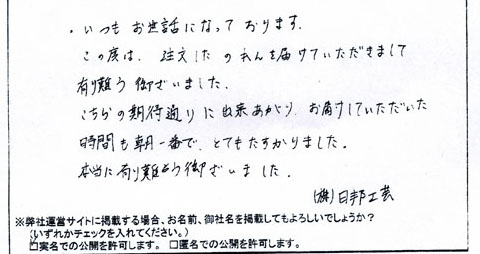 ・いつもお世話になっております。
この度は、注文したのれんを届けていただきまして
有り難う御ざいました。
こちらの期待通りに出来あがり、お届けしていただいた
時間も朝一番で、とてもたすかりました。
本当に有り難とう御ざいました。
(株)日邦工芸
※弊社運営サイトに掲載する場合、お名前、御社名を掲載してもよろしいでしょうか？
(いずれかチェックを入れてください。)
□実名での公開を許可します。 □匿名での公開を許可します。